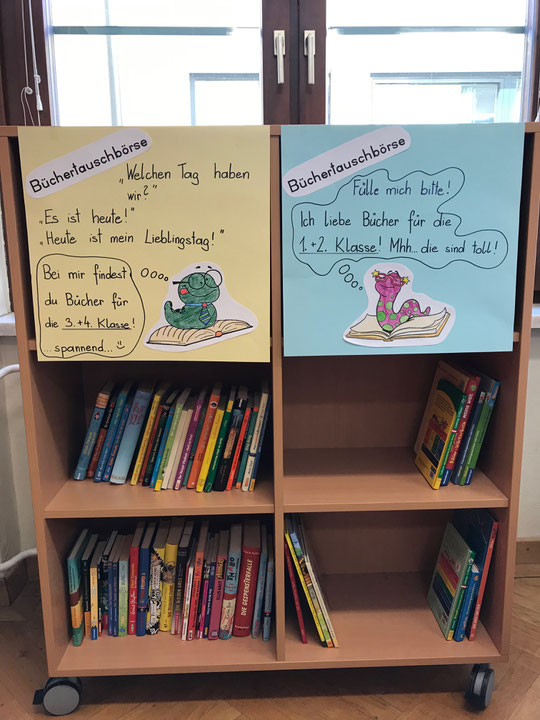 Büchertauschbörse
„Welchen Tag haben
wir?"
„Es ist heute!"
„Heute ist mein Lieblingstag!"
Bei mir findest
du Bücher für
die 3.+4. Klasse!
...spannend...
Büchertauschbörse
Fülle mich bitte!
Ich liebe Bücher für die
1.+2. Klasse! Mhh...die sind toll!
DIE GESPENSTERFALLE